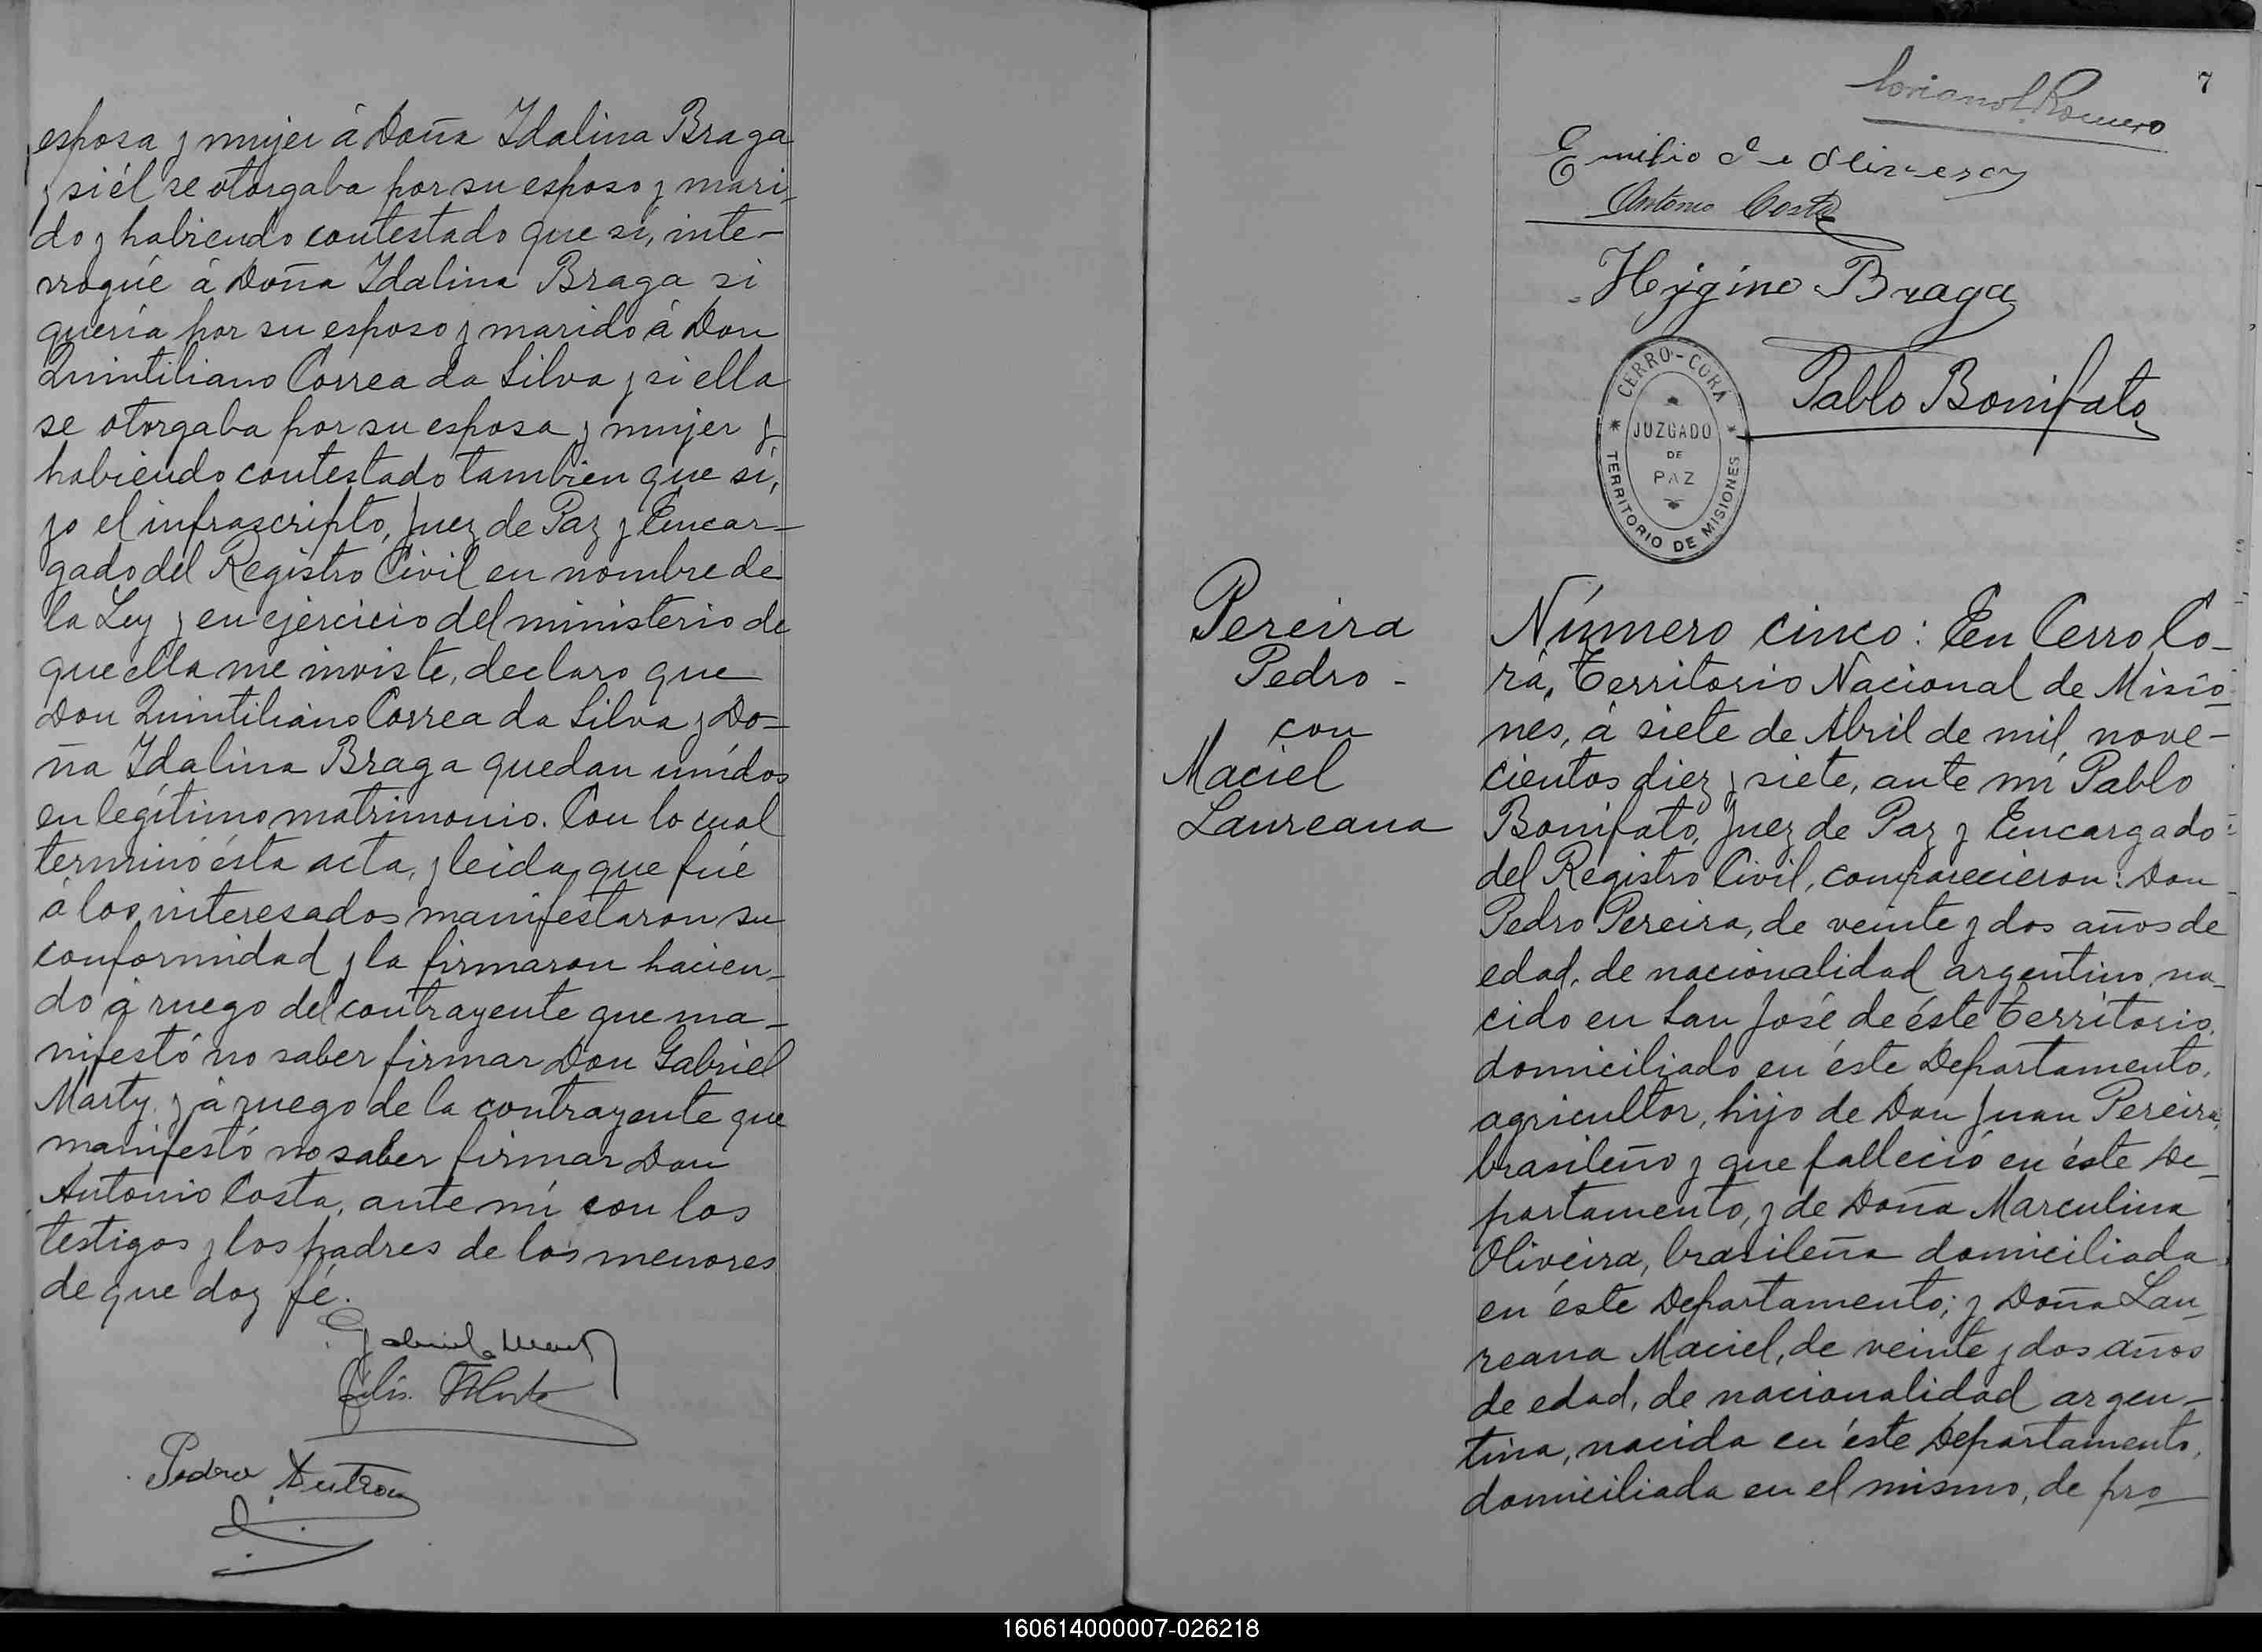 esposa y mujer á Doña Idalina Braga
y si él se otorgaba por su esposo y mari-
do y habiendo contestado que si, inte-
rrogué á Doña Idalina Braga si
quería por su esposo y marido á Don
Quintiliano Correa da Silva y si ella
se otorgaba por su esposa y mujer y
habiendo contestado tambien que si,
yo el infrascripto, Juez de Paz y Encar-
gado del Registro Civil en nombre de
la Ley y en ejercicio del ministerio de
que ella me inviste, declaro que
Don Quintiliano Correa da Silva y Do-
ña Idalina Braga quedan unidos
en legítimo matrimonio. Con lo cual
terminó ésta acta, y leida que fué
á los interesados manifestaron su
conformidad y la firmaron hacien-
do á ruego del contrayente que ma-
nifestó no saber firmar Don Gabriel
Marty y á ruego de la contrayente que
manifestó no saber firmar Don
Antonio Costa, ante mí con los
testigos y los padres de los menores
de que doy fé.
Gabriel Marty
Pedro
7
Romero
Emilio de Oliveira
Antonio Costa
Hygino Braga
Pablo Bonifato
CERRO-CORÁ
JUZGADO
DE
PAZ
TERRITORIO DE MISIONES
Pereira
Pedro -
con
Maciel
Laureana
Número cinco: En Cerro Co-
rá, Territorio Nacional de Misio-
nes, á siete de Abril de mil nove-
cientos diez y siete, ante mí Pablo
Bonifato, Juez de Paz y Encargado
del Registro Civil, comparecieron: Don
Pedro Pereira, de veinte y dos años de
edad, de nacionalidad argentino, na-
cido en San José de éste Territorio,
domiciliado en éste Departamento,
agricultor, hijo de Don Juan Pereira,
brasileño y que falleció en éste De-
partamento, y de Doña Marculina
Oliveira, brasileña domiciliada
en éste Departamento; y Doña Lau-
reana Maciel, de veinte y dos años
de edad, de nacionalidad argen-
tina, nacida en éste Departamento,
domiciliada en el mismo, de pro
160614000007-026218